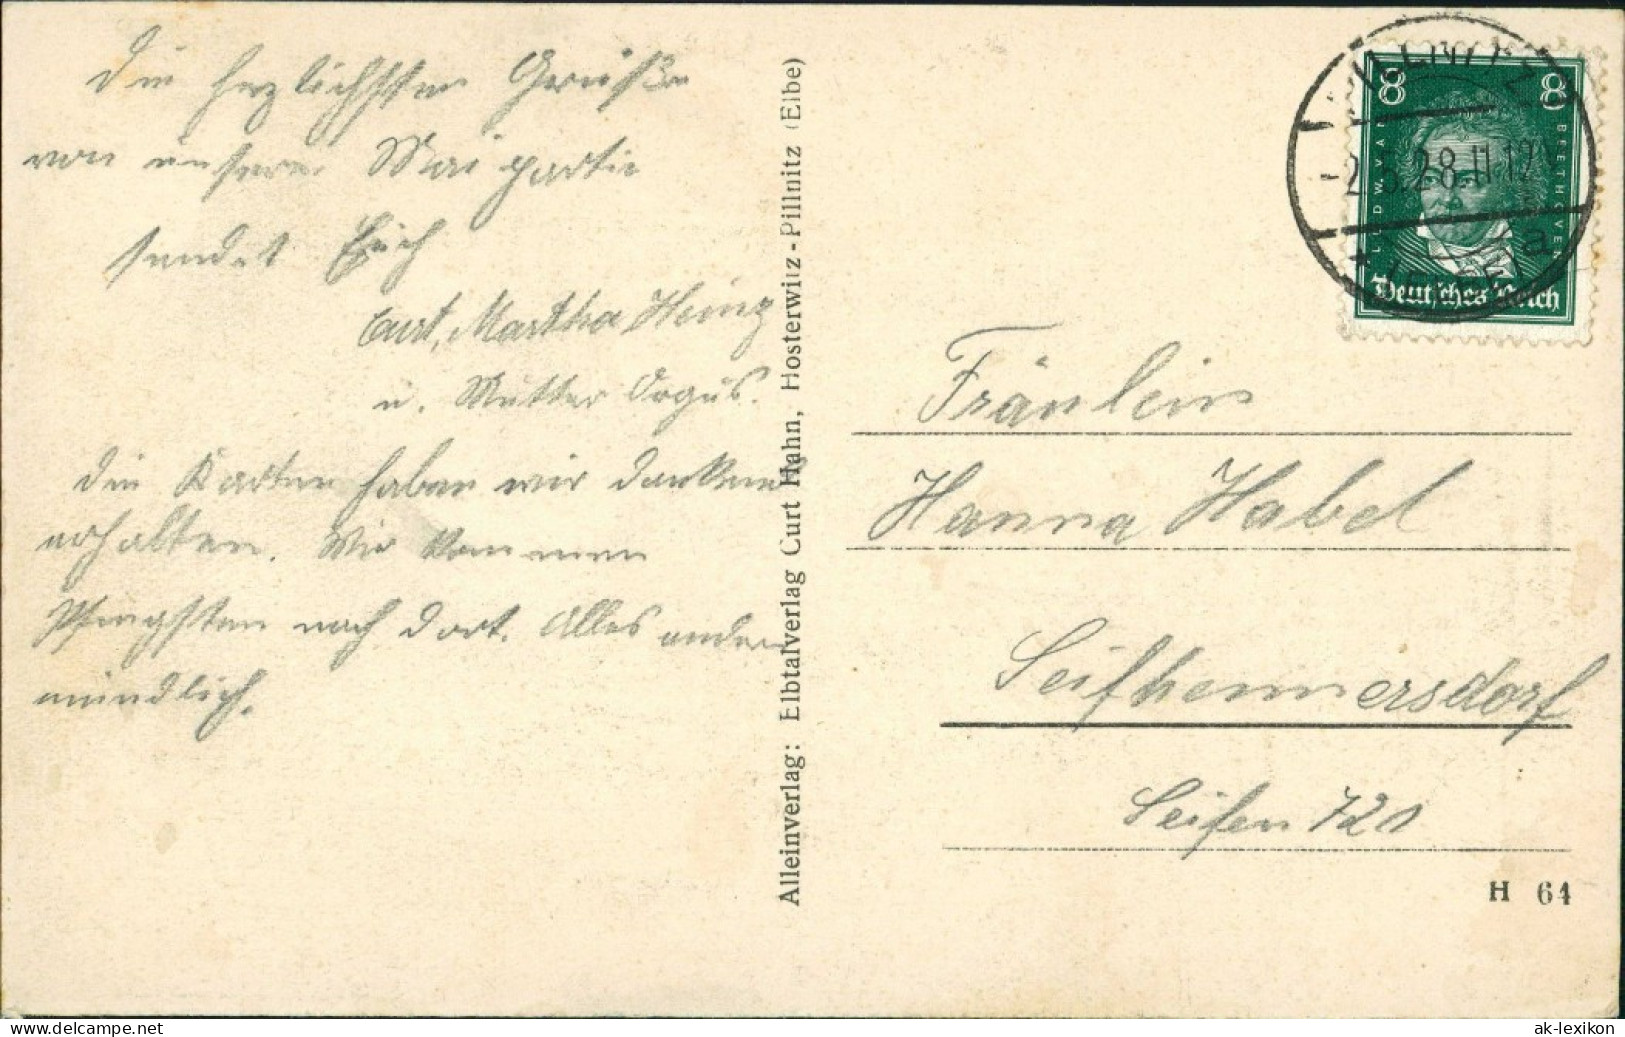 Die herzlichsten Grüße
von unserer Maipartie
sendet Erich
Curt, Martha Heinz
u. Mutter
Die Karten haben wir dankend
erhalten. Wir kommen
Pfingsten nach dort. Alles andere
mündlich.
Alleinverlag: Elbtalverlag Curt Hahn, Hosterwitz-Pillnitz (Elbe)
PILLNITZ
-2.5.28.11-12
a
* (ELBE)
8 8
LUDW. VAN BEETHOVEN
Deutsches Reich
Fräulein
Hanna Habel
Seifhennersdorf
Seifen 721
H 64
www.delcampe.net
ak-lexikon